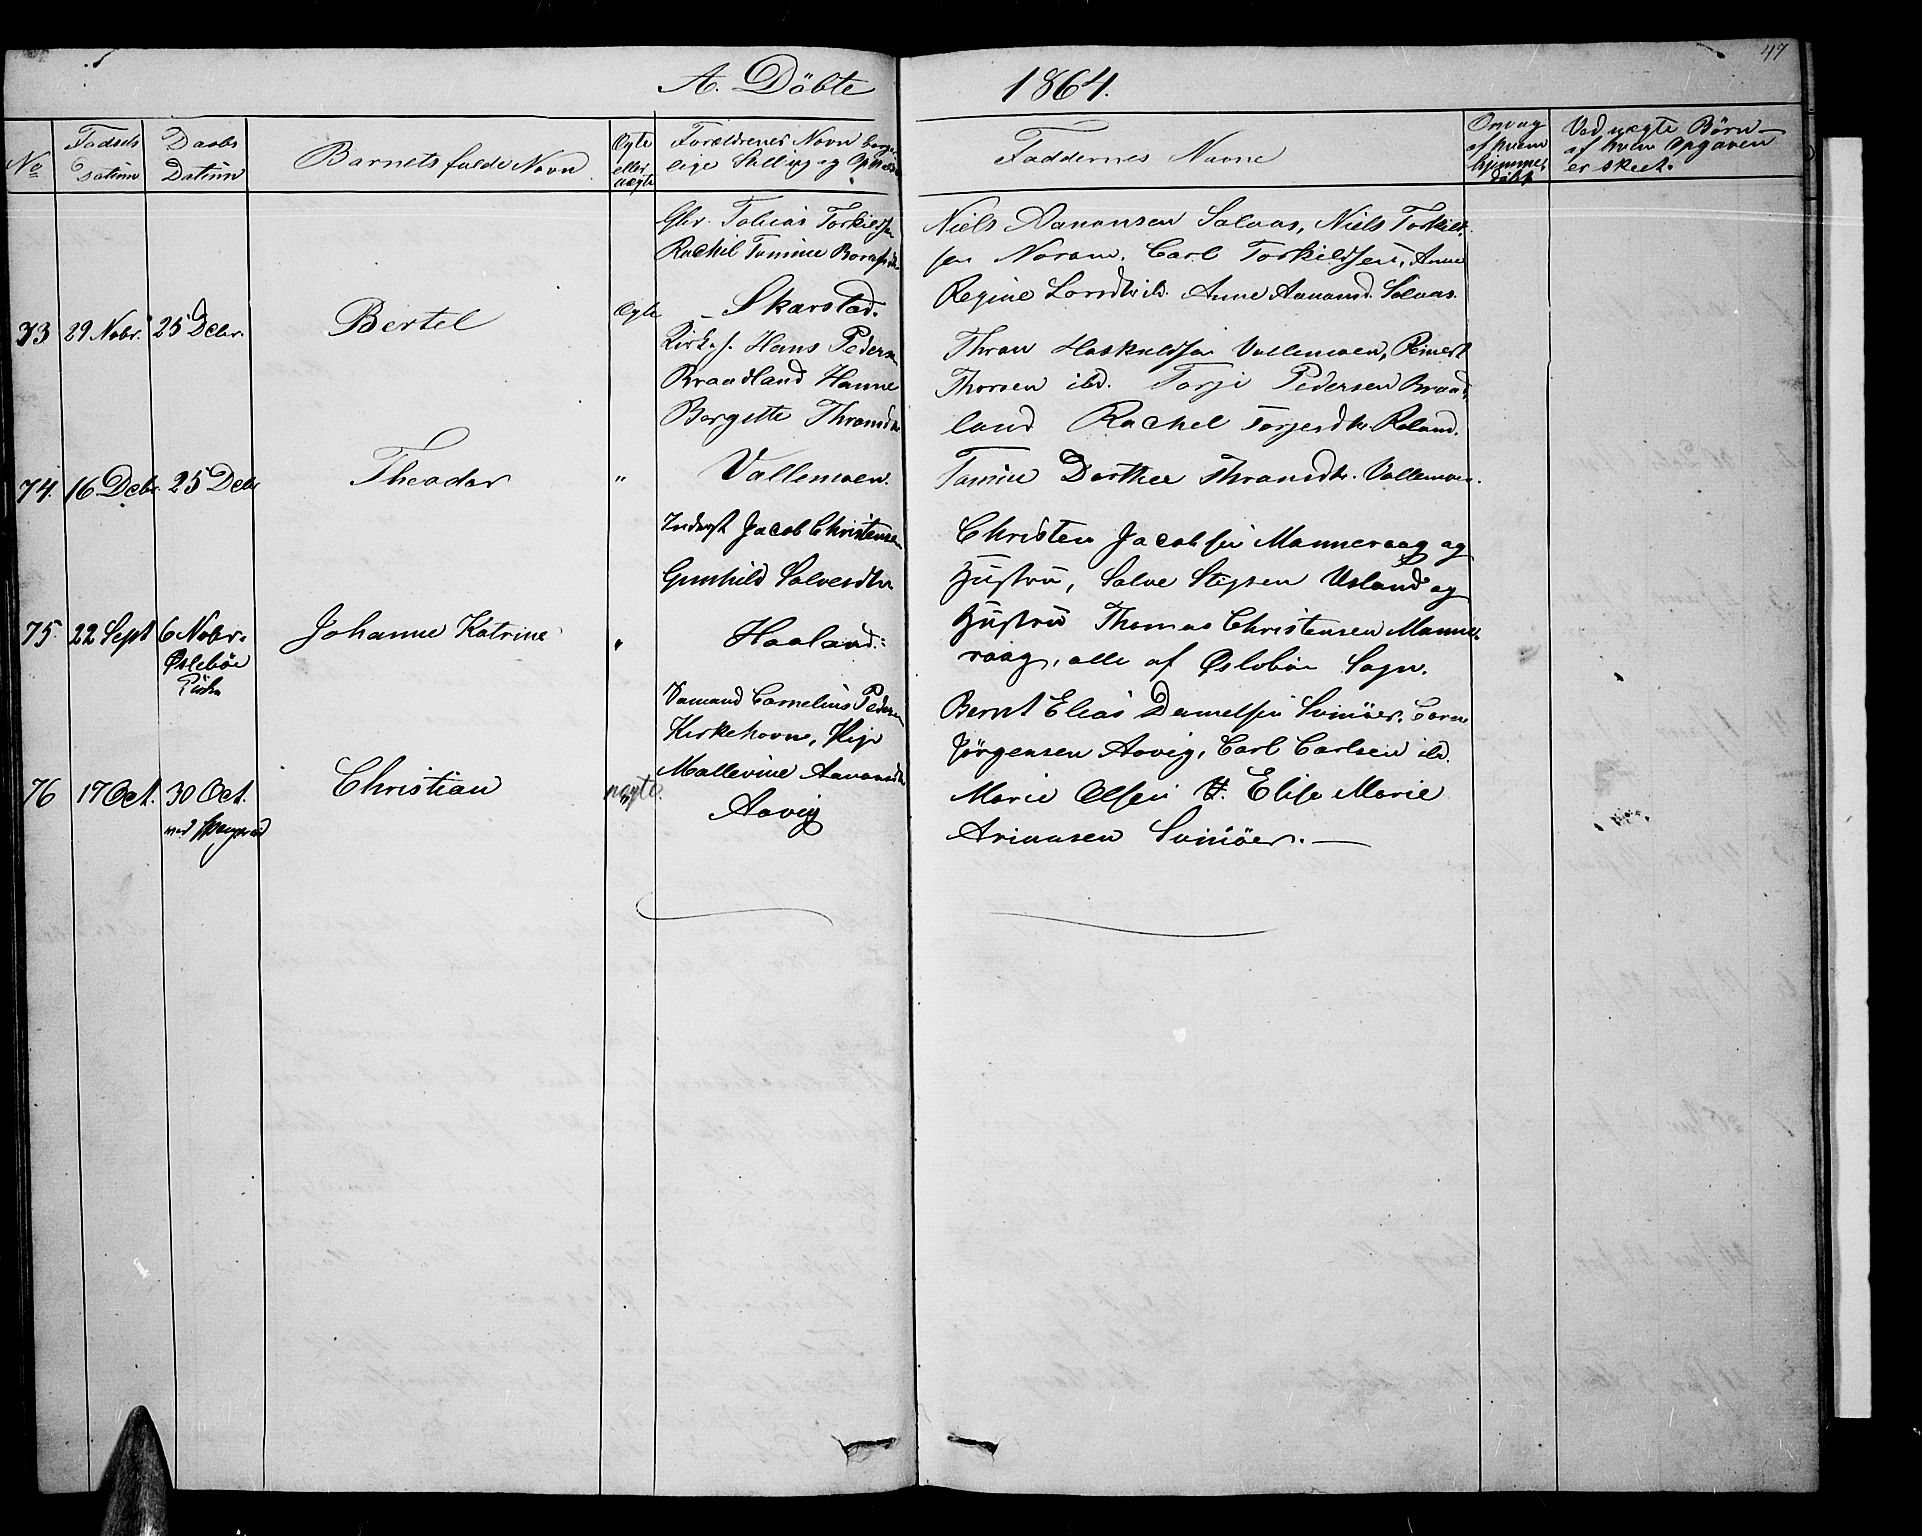 47
A. Döbte 1864.
No
Fødsels Datum
Daabs Datum
Barnets fulde Navn
Ægte eller uægte
Forældrenes Navn borger
lige Stilling og Opholds
Faddernes Navne
Om og af hvem hjemmedøbt
Ved uægte Børn
af hvem Opgaven
er skeet.
73 29 Nobr. 25 Debr.
Bertel
Ægte
Gbr. Tobias Torkildsen
Rachil Tomine Berntsdtr.
Skarstad.
Niels Aanonsen Salvas, Niels Torkild-
sen Noram. Carl Torkildsen, Anne
Regine Larsdtr ibd. Anne Aanonsd. Salvas.
74. 16 Debr. 25 Debr
Theodor
"
Kirks. Hans Pedersen
Braadland Hanne
Bergitte Thronsdtr
Vallemoen.
Thron Haskuldsen Vallemoen, Reinert
Thorsen ibd. Torje Pedersen Braad-
land Rachel Torjesdtr. Roland.
Tomine Dorthee Thronsdtr. Vallemoen.
75. 22 Sept 6 Nobr.
Øslebøe
Kirke
Johanne Katrine
"
Inderst Jacob Christensen
Gunhild Salvesdtr
Haaland.
Christen Jacobsen Manneraag og
Hustru, Salve Stigsen Usland og
Hustru Thomas Christensen Manne-
raag, alle af Øslebøe Sogn.
76 17 Oct. 30 Oct.
Christian
uægte.
Sømand Cornelius Pedersen
Kirkehavn, Pige
Mallevine Aanonsdtr
Aavig
Bernt Elias Danielsen Svinöer,
Jörgensen Aavig, Carl Carlsen ibd.
Marie Olsen Elise Marie
Svinöer.